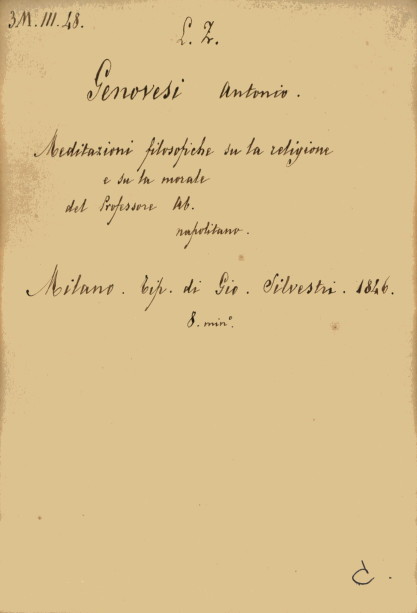 3M.III.48.
L. Z.
Genovesi Antonio.
Meditazioni filosofiche su la religione
e su la morale
del Professore Ab.
napolitano.
Milano. Tip. di Gio. Silvestri. 1846.
8. min°.
C.